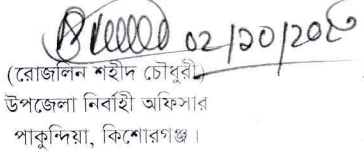 02/10/202
(রোজলিন শহীদ চৌধুরী)
উপজেলা নির্বাহী অফিসার
পাকুন্দিয়া, কিশোরগঞ্জ।